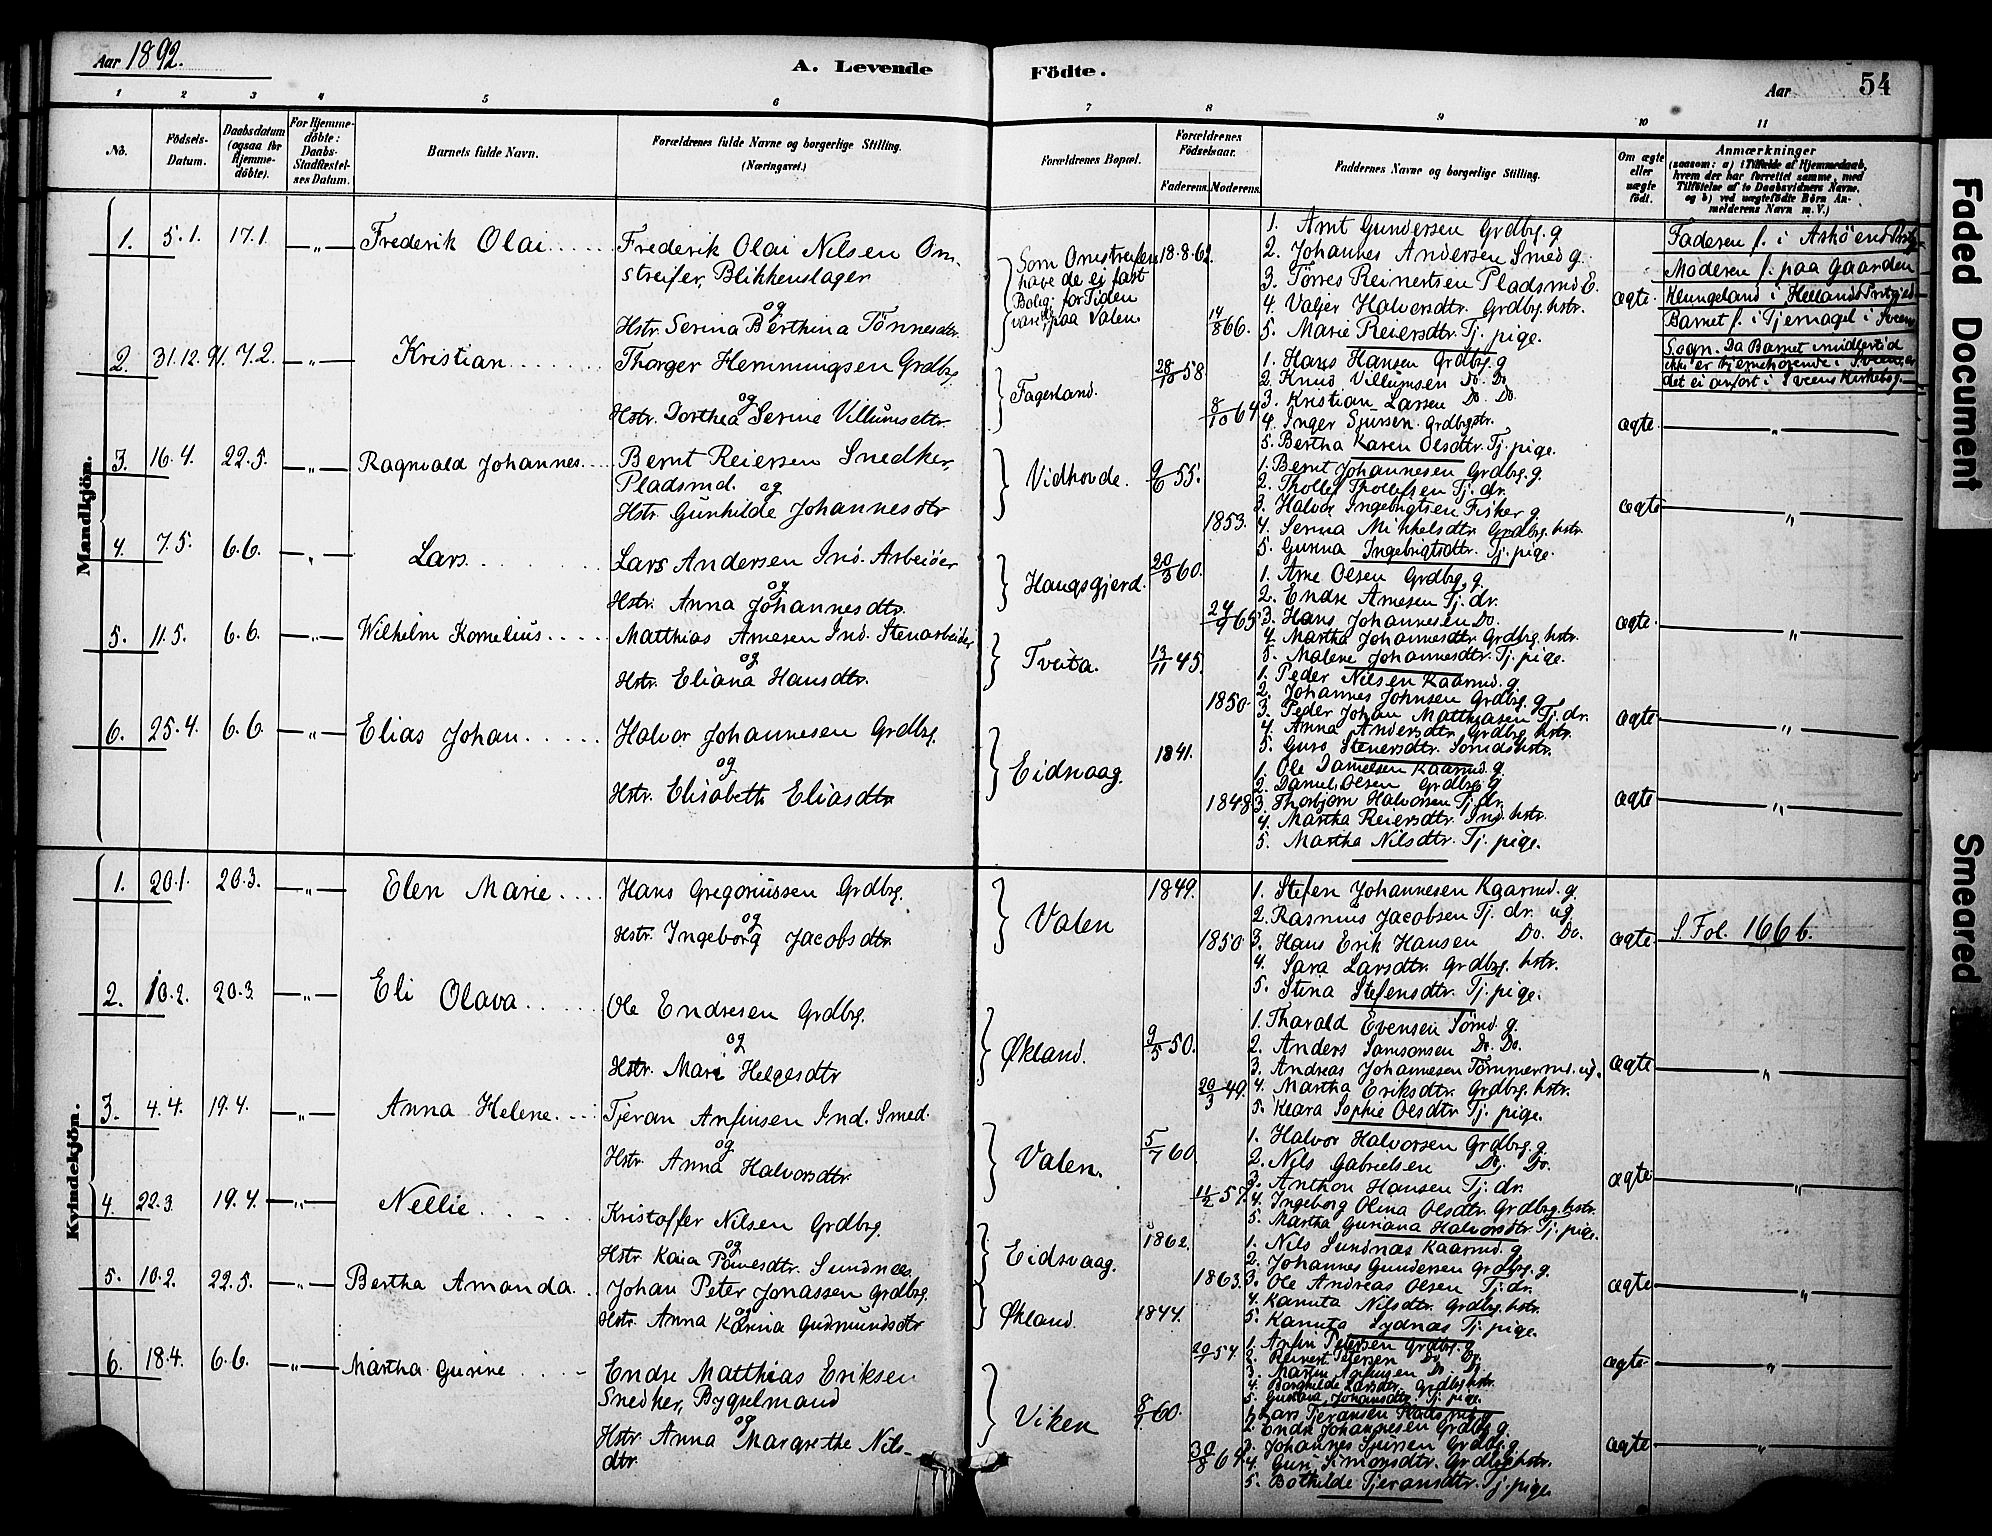 Aar 1892.
A. Levende
Födte.
Aar
54
1 2 3 4 5 6 7 8 9 10 11
No.
Födsels-
Datum.
Daabsdatum
(ogsaa for
Hjemme-
döbte).
For Hjemme-
döbte:
Daabs-
Stadfæstel-
ses Datum.
Barnets fulde Navn.
Forældrenes fulde Navne og borgerlige Stilling.
(Næringsvei.)
Forældrenes Bopæl.
Forældrenes
Födselsaar.
Faderens. Moderens.
Faddernes Navne og borgerlige Stilling.
Om ægte
eller
uægte
født.
Anmærkninger
(saasom: a) i Tilfælde af Hjemmedaab,
hvem der har forrettet samme, med
Tilföielse af to Daabsvidners Navne.
og b) ved uægtefödte Börn An-
melderens Navn m.V.)
Mandkjön.
1. 5.1. 17.1. — „ — Frederik Olai
Frederik Olai Nilsen Om-
streifer, Blikkenslager
og
Hstr. Serina Berthina Tönnesdtr.
Som Omstreifere
have de ei fast
Bolig; for Tiden
paa Valen
18.8.62.
14/8 66.
1. Arnt Gundersen Grdbrg. g
2. Johannes Andersen Smed g.
3. Törres Reinertsen Pladsmd E.
4. Valjer Halvorsdtr. Grdbrg. hstr.
5. Marie Reiersdtr. Tj. pige.
ægte.
Faderen f. i Asköen
Moderen f. paa Gaarden
Klungeland i Hetlands Prstgjeld
Barnet f. i Tjernagel i Sveen
Sogn. Da Barnet imidlertid
ikke er hjemehörende i Sveen, er
det ei anfört i Sveens Kirkebog.
2. 31.12.91. 7.2. — „ — Kristian
Thorger Hemmingsen Grdbrg.
og
Hstr. Dorthea Serine Villumsdtr.
Fagerland.
28/10 58
8/10 64
1. Hans Hansen Grdbrg. g
2. Knud Villumsen Do. Do
3. Kristian Larsen Do. Do.
4. Inger Sjursen. Grdbrg.str.
5. Bertha Karen Olsdtr. Tj. pige.
ægte. — „ —
3. 16.4. 22.5. — „ — Ragnvald Johannes
Bernt Reiersen Snedker,
Pladsmd. og
Hstr. Gunhilde Johannesdtr
Vidhovde.
9/6 55.
1853.
1. Bernt Johannesen Grdbrg. g
2. Thollef Thollefsen Tj. dr.
3. Halvor Ingebrigtsen Fisker g
4. Serina Mikkelsdtr. Grdbrg. hstr.
5. Gurina Ingebrigtsdtr. Tj. pige.
ægte — „ —
4. 7.5. 6.6. — „ — Lars
Lars Andersen Ind. Arbeider
og
Hstr. Anna Johannesdtr.
Haugsgjerd.
20/3 60.
24/4 65
1. Arne Olsen Grdbrg. g.
2. Endre Arnesen Tj. dr.
3. Hans Johannesen Do.
4. Martha Johannesdtr. Grdbrg. hstr.
5. Malene Johannesdtr. Tj. pige.
ægte. — „ —
5. 11.5. 6.6. — „ — Wilhelm Kornelius
Matthias Arnesen Ind. Stenarbeider
og
Hstr. Eliana Hansdtr.
Tveita.
13/11 45.
1850.
1. Peder Nilsen Kaarmd. g
2. Johannes Johnsen Grdbrg. g
3. Peder Johan Matthiasen Tj. dr.
4. Anna Andersdtr. Grdbrg. hstr.
5. Guro Stenersdtr. Smedshstr.
ægte — „ —
6. 25.4. 6.6. — „ — Elias Johan
Halvor Johannesen Grdbrg.
og
Hstr. Elisabeth Eliasdtr
Eidsvaag.
1841.
1848
1. Ole Danielsen Kaarmd. g.
2. Daniel Olsen Grdbrg. g
3. Thorbjörn Halvorsen Tj. dr.
4. Martha Reiersdtr. Ind. hstr.
5. Martha Nilsdtr. Tj. pige.
ægte — „ —
Kvindekjön.
1. 20.1. 20.3. — „ — Elen Marie
Hans Gregoriussen Grdbrg.
og
Hstr. Ingeborg Jacobsdtr.
Valen
1849.
1850
1. Stefen Johannesen Kaarmd. g.
2. Rasmus Jacobsen Tj. dr. ug.
3. Hans Erik Hansen Do. Do.
4. Sara Larsdtr. Grdbrg. hstr.
5. Stina Stefensdtr. Tj. pige.
ægte. S. Fol. 166 b.
2. 10.2. 20.3. — „ — Eli Olava
Ole Endresen Grdbrg.
og
Hstr. Mari Helgesdtr
Økland.
9/5 50.
20/3 49.
1. Tharald Evensen Sømd. g.
2. Anders Samsonsen Do. Do.
3. Andreas Johannesen Tömmermd. ug.
4. Martha Eriksdtr. Grdbrg. hstr.
5. Klara Sophie Olsdtr. Tj. pige.
ægte — „ —
3. 4.4. 19.4. — „ — Anna Helene
Tjeran Anfinsen Ind. Smed.
og
Hstr. Anna Halvorsdtr.
Valen.
5/7 60
11/2 57.
1. Halvor Halvorsen Grdbrg. g.
2. Nils Gabrielsen Do. Do.
3. Anthon Hansen Tj. dr.
4. Ingeborg Olina Olsdtr. Grdbrg. hstr.
5. Martha Guriana Halvorsdtr. Tj. pige.
ægte — „ —
4. 22.3. 19.4. — „ — Nellie
Kristoffer Nilsen Grdbrg.
og
Hstr Kaia Tönnesdtr. Sundnæs.
Eidsvaag.
1862.
1863.
1. Nils Sundnæs Kaarmd. g
2. Johannes Gundersen Grdbrg. g.
3. Ole Andreas Olsen Tj. dr.
4. Kanuta Nilsdtr. Grdbrg. hstr.
5. Kanuta Sydnæs Tj. pige.
ægte — „ —
5. 10.2. 22.5. — „ — Bertha Amanda
Johan Peter Jonassen Grdbrg.
og
Hstr. Anna Karina Gudmundsdtr
Økland.
1844.
20/1 54.
1. Anfin Petersen Grdbrg. g
2. Reinert Petersen Do Do
3. Martin Do. Do.
4. Borghilde Larsdtr. Grdbrg. hstr.
5. Johansdtr. Tj. pige.
ægte. — „ —
6. 18.4. 6.6. — „ — Martha Gurine
Endre Matthias Eriksen
Snedker, Bygselmand
og
Hstr. Anna Margrethe Nils-
dtr.
Viken
60.
30/8 64.
1. Lars Tjeransen Pladsmd. g
2. Endre Johannesen Grdbrg. g.
3. Johannes Sjursen Grdbg. g.
4. Guri Simonsdtr. Grdbrg. hstr.
5. Bothilde Tjeransdtr. Tj. pige.
ægte — „ —
Faded Document
Smeared